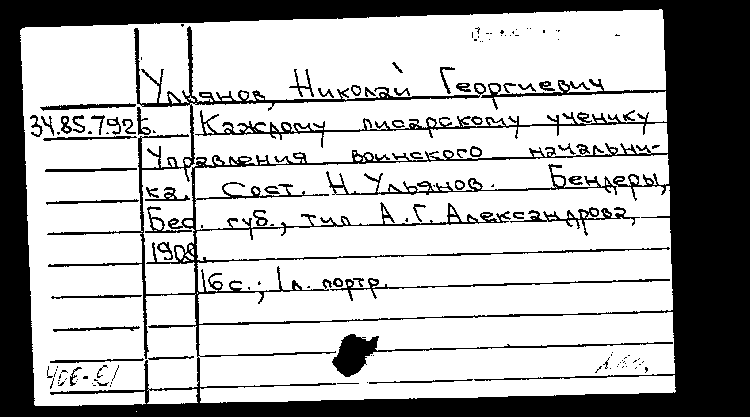 Ульянов, Николай Георгиевич
34.85.7.926. Каждому писарскому ученику
Управления воинского начальни-
ка. Сост. Н. Ульянов. Бендеры,
Бес. губ., тип. А. Г. Александрова,
1908.
16 с.; 1 л. портр.